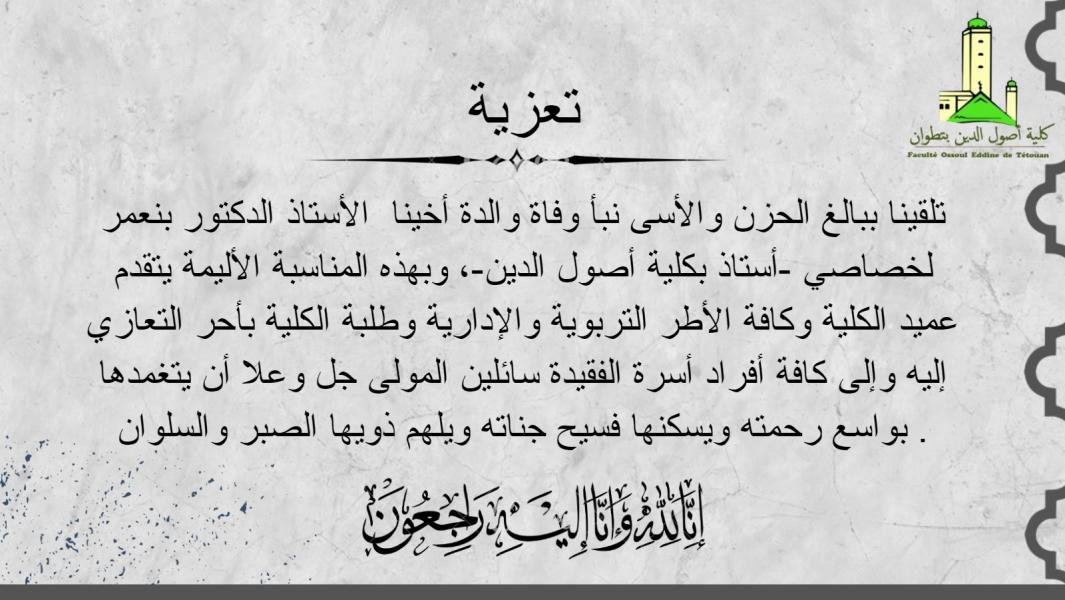 كلية أصول الدين بتطوان
Faculté Ossoul Eddine de Tétouan
تعزية
تلقينا ببالغ الحزن والأسى نبأ وفاة والدة أخينا الأستاذ الدكتور بنعمر
لخصاصي -أستاذ بكلية أصول الدين-، وبهذه المناسبة الأليمة يتقدم
عميد الكلية وكافة الأطر التربوية والإدارية وطلبة الكلية بأحر التعازي
إليه وإلى كافة أفراد أسرة الفقيدة سائلين المولى جل وعلا أن يتغمدها
. بواسع رحمته ويسكنها فسيح جناته ويلهم ذويها الصبر والسلوان
إِنَّا لِلَّهِ وَإِنَّا إِلَيْهِ رَاجِعُونَ